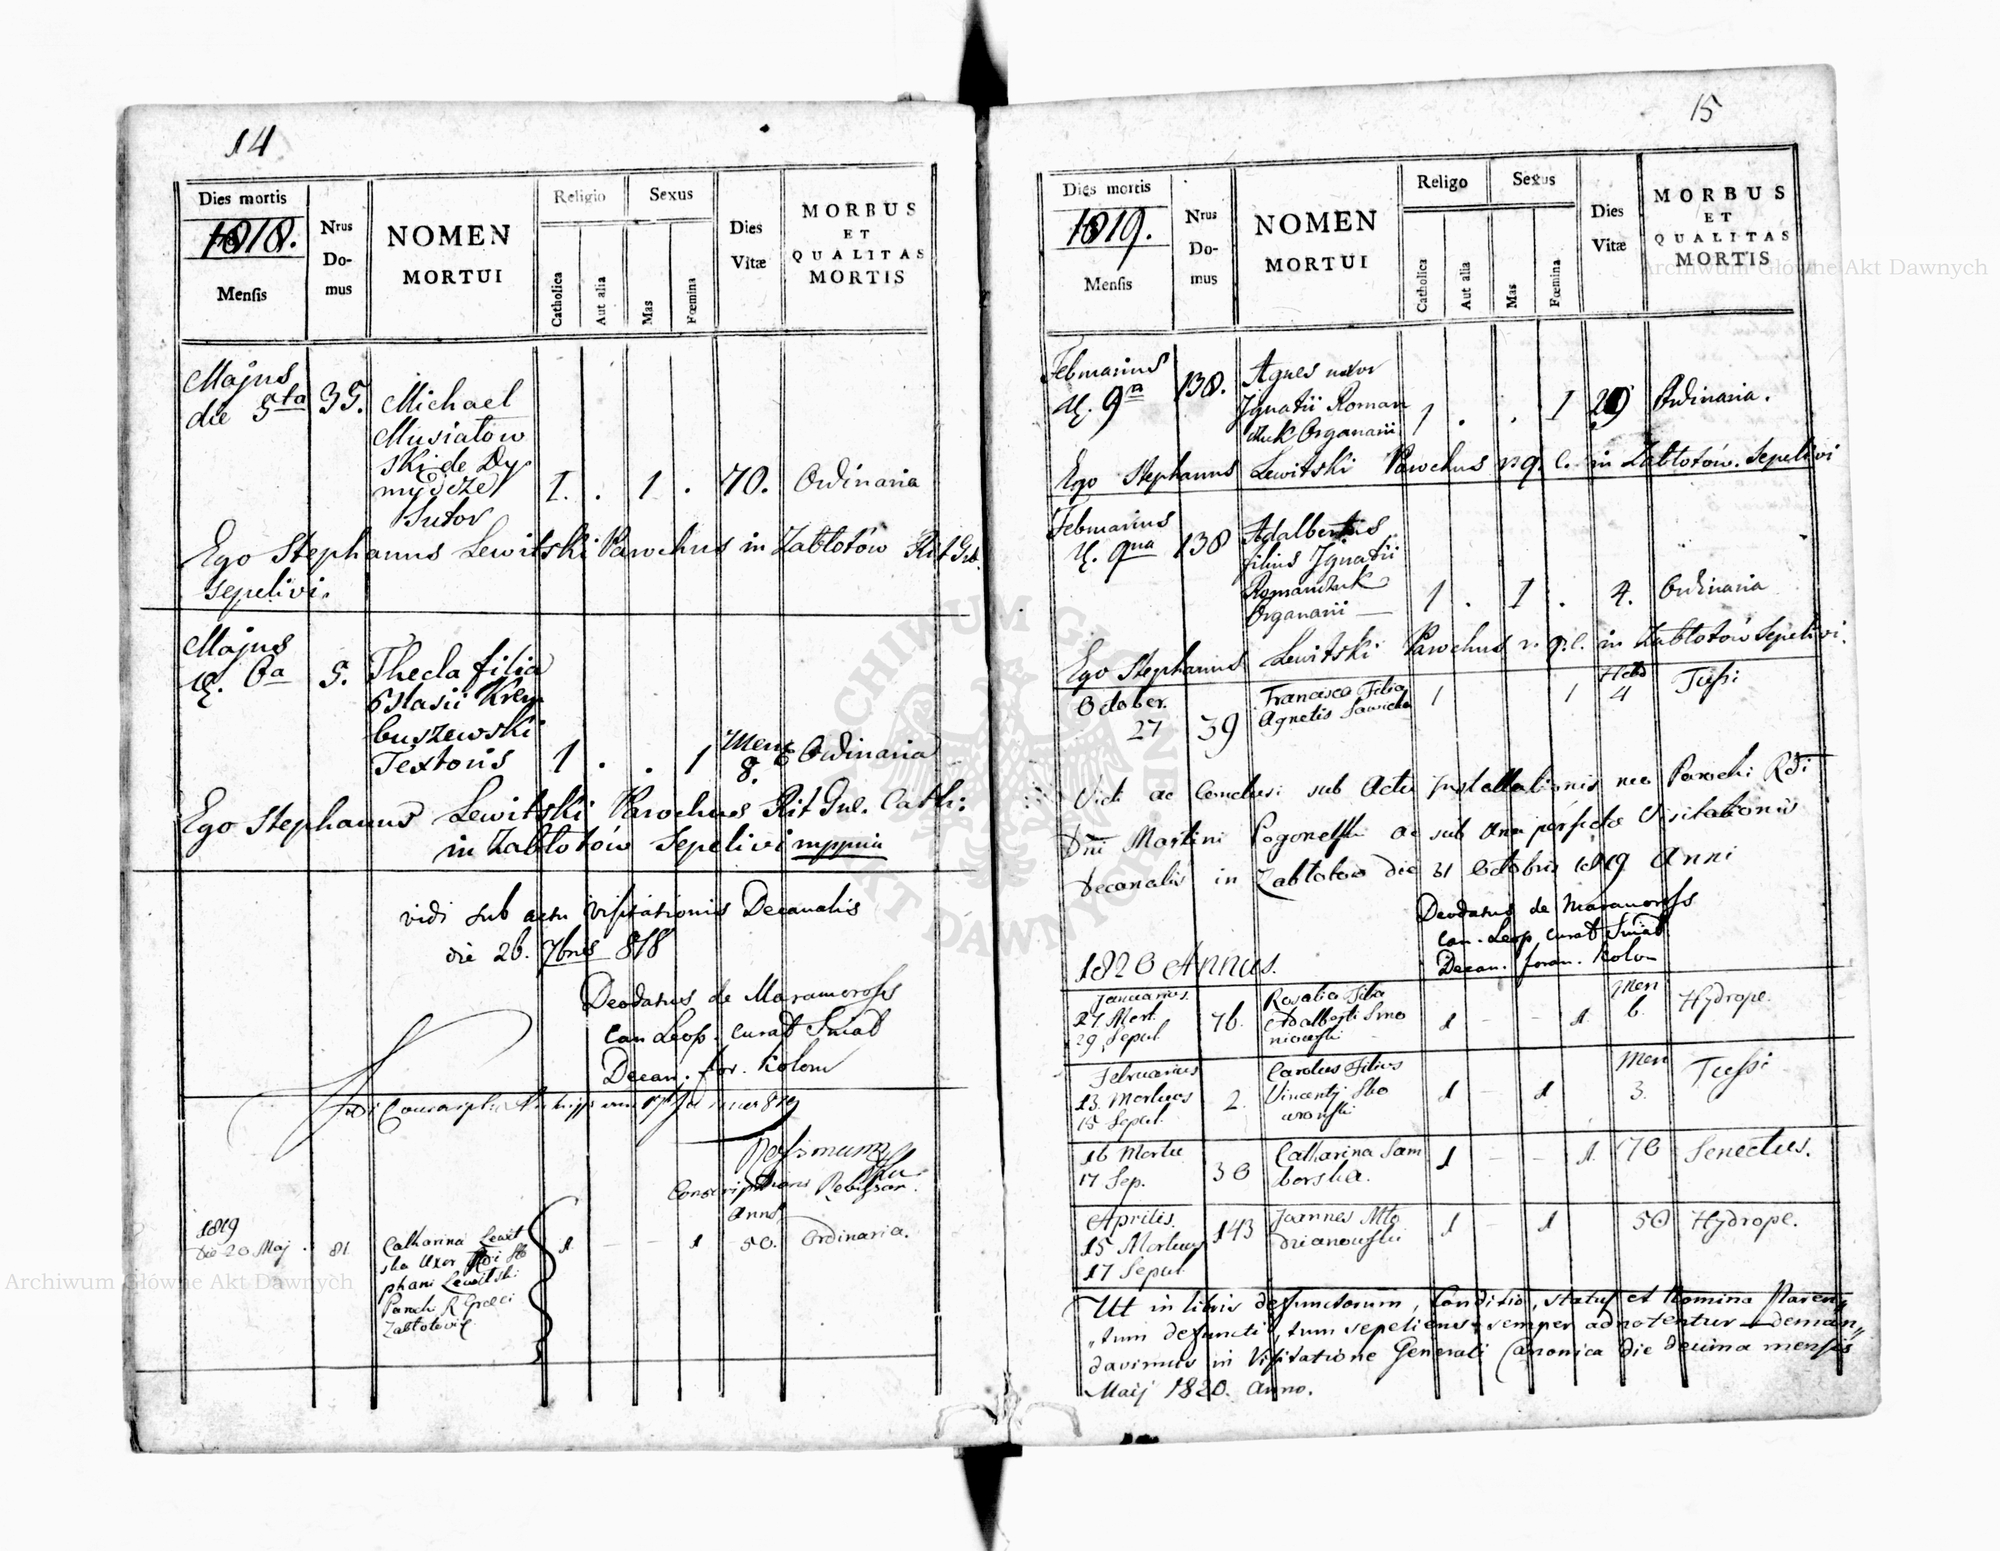 14
Dies mortis
1818.
Mensis
Nrus
Do-
mus
NOMEN
MORTUI
Religio
Catholica
Aut alia
Sexus
Mas
Fœmina
Dies
Vitæ
MORBUS
ET
QUALITAS
MORTIS
Majus
die 5ta 35. Michael
Musiatow
ski de Dy
mydcze I. . 1 . 70. Ordinaria
Sutor
Ego Stephanus Lewitski Parochus in Zabłotów Rit Gr.
sepelivi.
Majus
5. Thecla filia
Krem
buszewski
Textoris 1 . . 1 Mens 8. Ordinaria
Ego Stephanus Lewitski Parochus Rit Cath:
in Zabłotów Sepelivi mppria
vidi sub actu Visitationis Decanalis
die 26. 7bris 818
Deodatus de Maramoross
Can Leop. curat Sniat
Decan. for. Kolom
Conscriptions
1819
Die 20 Maj. 81. Catharina Lewit
ska Uxor Ste
phani Lewitski
Parochi R Graeci
1 – – 1 Anno 50. Ordinaria.
15
Dies mortis
1819.
Mensis
Nrus
Do-
mus
NOMEN
MORTUI
Religo
Catholica
Aut alia
Sexus
Mas
Fœmina
Dies
Vitæ
MORBUS
ET
QUALITAS
MORTIS
Februarius
9na 138. Agnes uxor
Ignatii Roman
czuk Organarii 1 . . 1 29 Ordinaria.
Ego Stephanus Lewitski Parochus r. g. c. in Zabłotów. Sepelivi
Februarius
138 Adalbertus
filius Ignatii
Romanczuk
Organarii 1 . 1 . 4. Ordinaria
Ego Stephanus Lewitski Parochus r. g. c. in Zabłotów Sepelivi.
October
27 39 Francisca Filia
Agnetis Sawicka 1 1 Hebd 4 Tussi
Vidi ac Conclusi sub Actu Installationis neo Parochi Rdi
Dni Martini ac sub Visitationis
Decanalis in Zabłotow die 31 Octobris 1819 Anni
Deodatus de Maramoross
Can. Leop. curat Sniat
Decan. foran. Kolom
1820 Annus.
Januarius
27. Mort. 76. Rosalia Filia
29 Sepul. Adalberti 1 – – 1 Men 6. Hydrope.
Februarius
13. Mortuus 2. Carolus Filius
15 Sepul. Vincentij 1 – 1 Men 3. Tussi
16 Mortu 30 Catharina Sam
17 Sep. borska. 1 – – 1 70 Senectus.
Aprilis.
15 Mortuus 143 Joannes Mło
17 Sepul. dzianowski 1 – 1 50 Hydrope.
Ut in libris defunctorum, Conditio, status et Nomina Paren„
„tum defuncti, tum sepeliens, semper adnotentur deman„
davimus in Visitatione Generali Canonica die decima mensis
Maij 1820. Anno.
ARCHIWUM GŁÓWNE AKT DAWNYCH
Archiwum Główne Akt Dawnych
Archiwum Główne Akt Dawnych